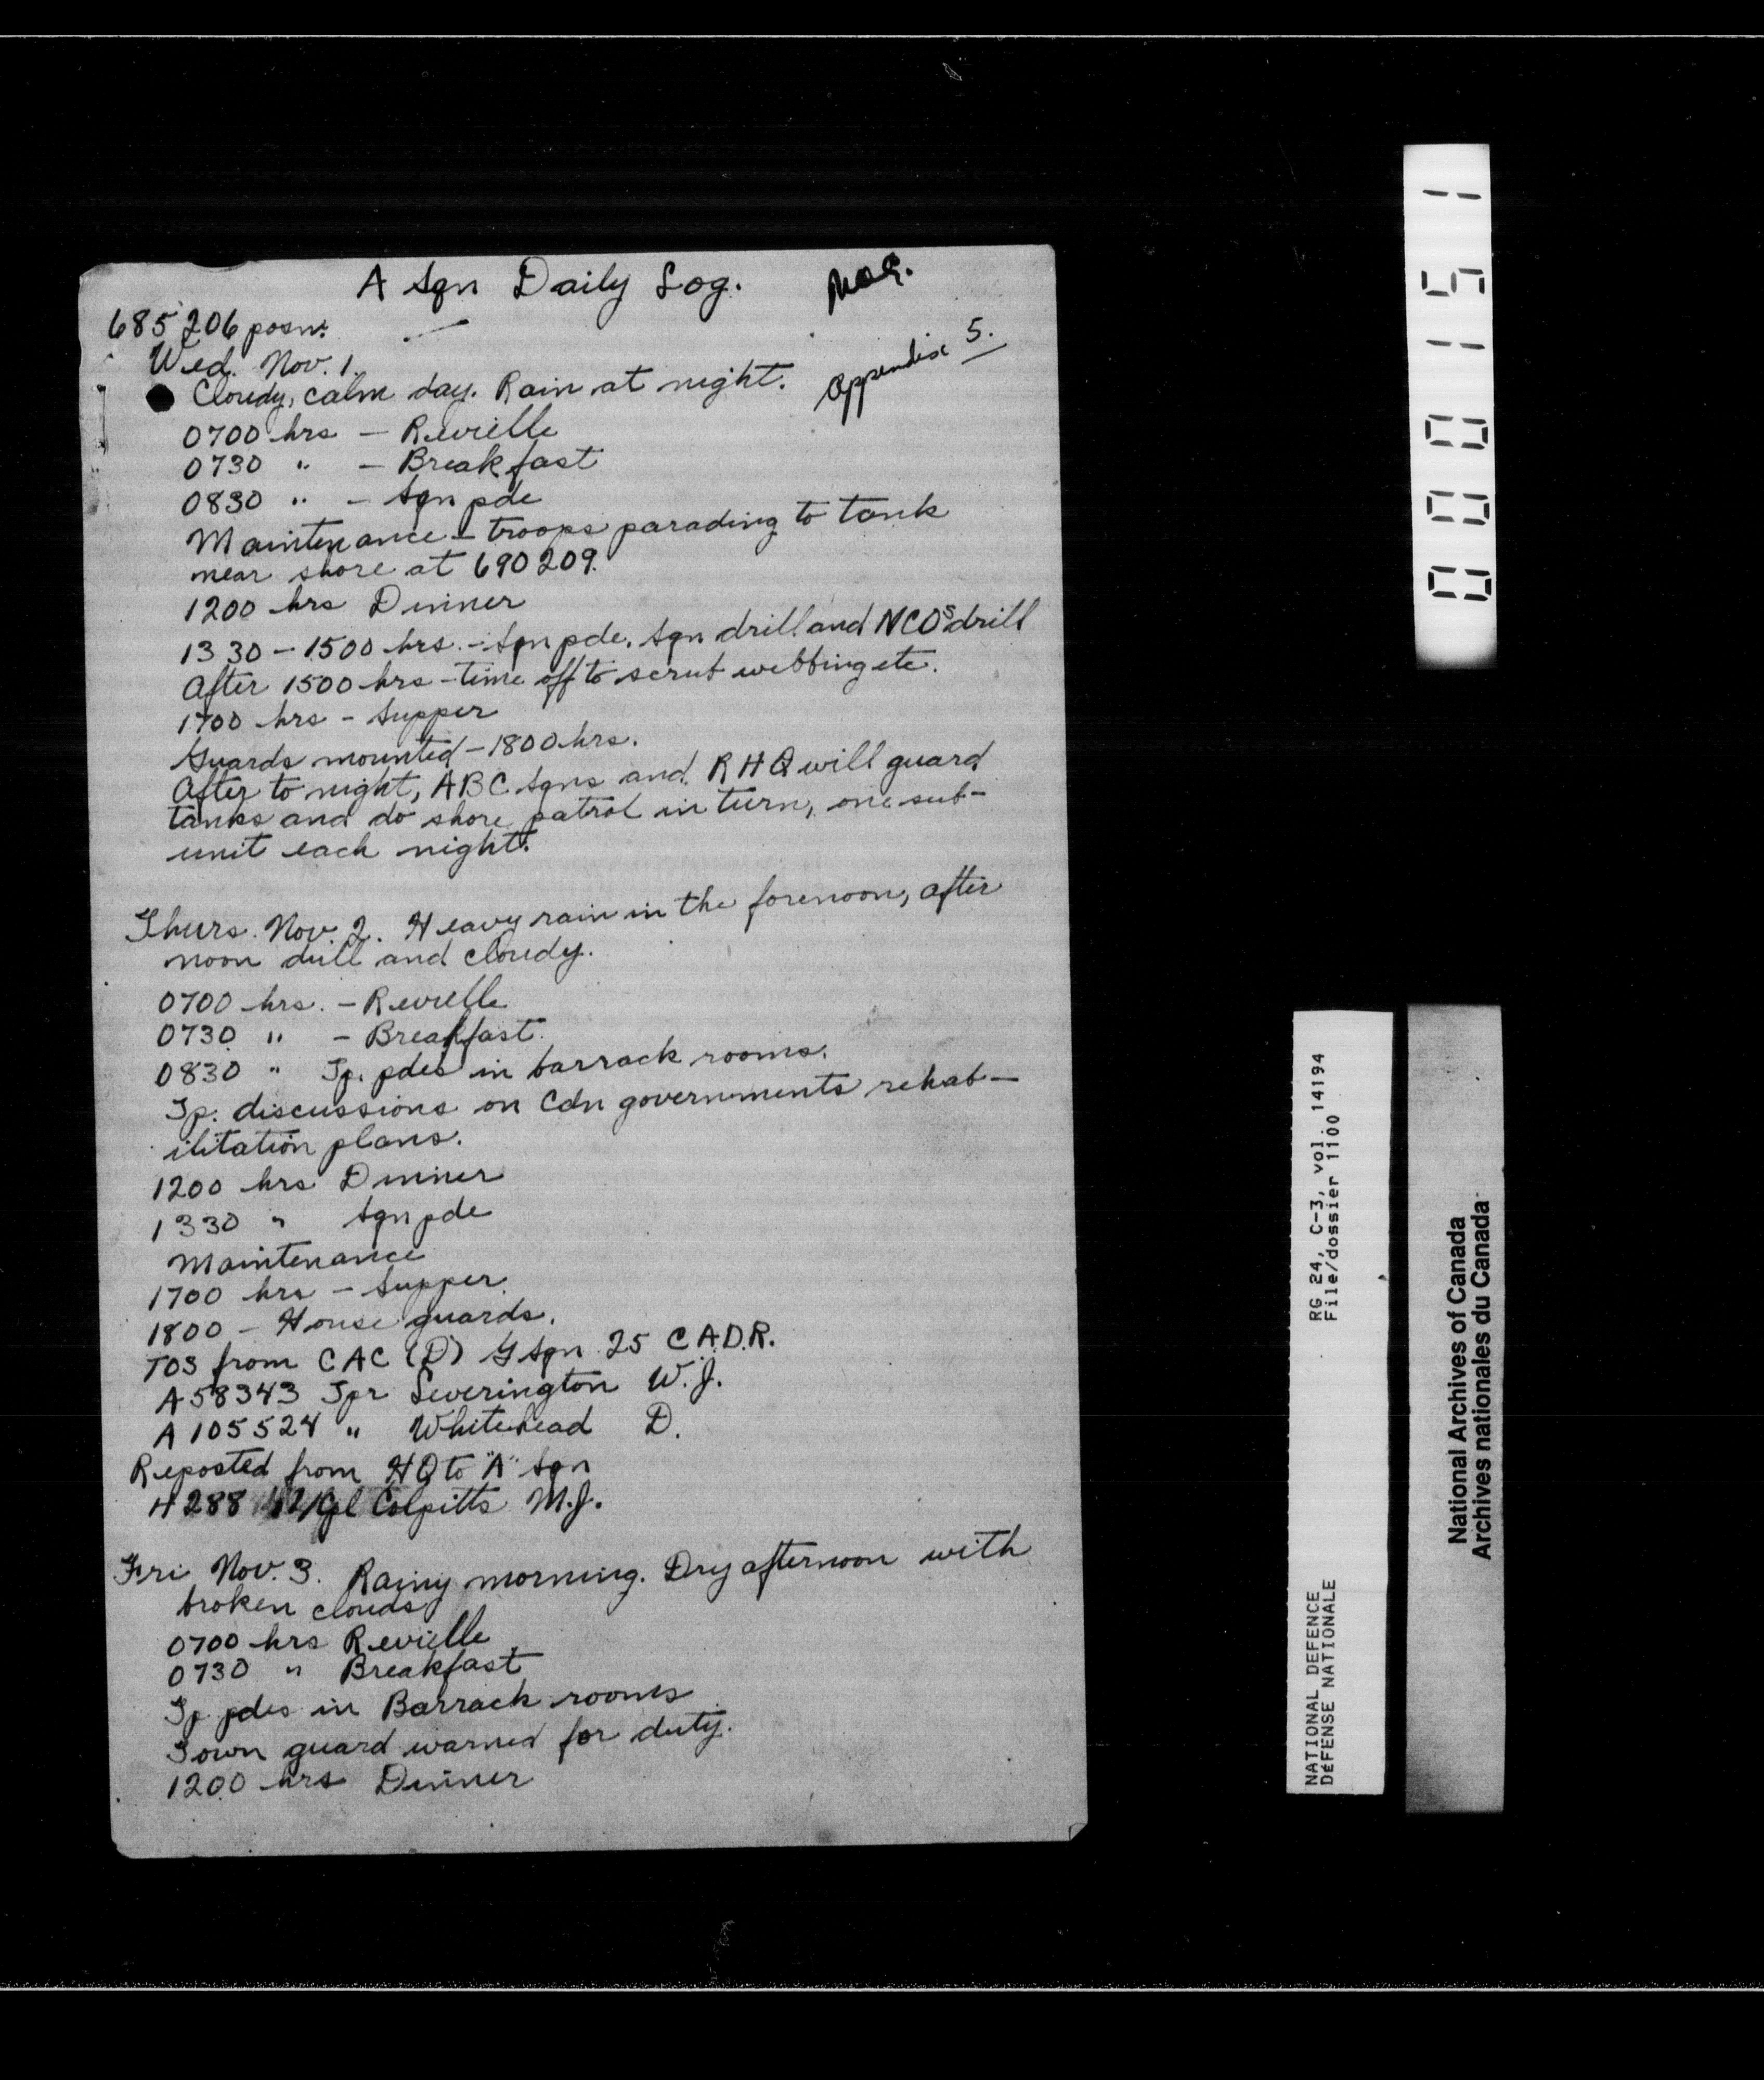 A Sqn Daily Log.
685206 posn.
Appendix 5.
Wed. Nov. 1.
Cloudy, calm day. Rain at night.
0700 hrs – Revielle
0730 " – Breakfast
0830 " – Sqn pde
Maintenance – troops parading to tank
near shore at 690209.
1200 hrs Dinner
1330 – 1500 hrs. – Sqn pde. Sqn drill and NCOs drill
After 1500 hrs – time off to scrub webbing etc.
1700 hrs – Supper
Guards mounted – 1800 hrs.
After to night, ABC Sqns and RHQ will guard
tanks and do shore patrol in turn, one sub-
unit each night.
Thurs. Nov. 2. Heavy rain in the forenoon, after
noon dull and cloudy.
0700 hrs. – Revielle
0730 " – Breakfast.
0830 " Tp. pdes in barrack rooms.
Tp. discussions on Cdn governments rehab-
ilitation plans.
1200 hrs Dinner
1330 " Sqn pde
Maintenance
1700 hrs – Supper.
1800 – House guards.
TOS from CAC (D) G Sqn 25 C.A.D.R.
A58343 Tpr Leverington W.J.
A105524 " Whitehead D.
Reposted from HQ to "A" Sqn
H288 L/Cpl Colpitts M.J.
Fri Nov. 3. Rainy morning. Dry afternoon with
broken clouds
0700 hrs Revielle
0730 " Breakfast
Tp pdes in Barrack rooms
Town guard warned for duty.
1200 hrs Dinner
0000151
RG 24, C-3, vol. 14194
File/dossier 1100
NATIONAL DEFENCE
DÉFENSE NATIONALE
National Archives of Canada
Archives nationales du Canada